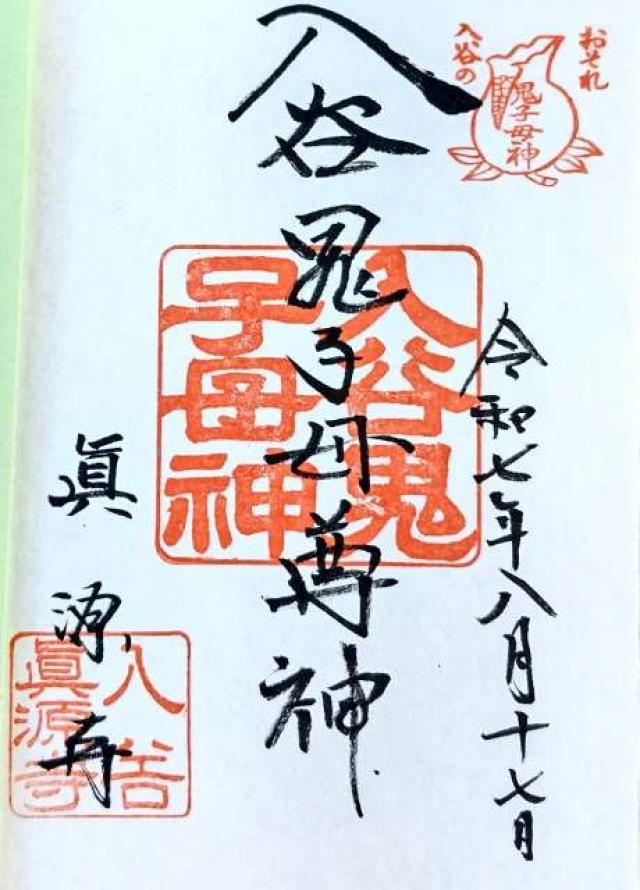 おそれ
入谷の
鬼子母神
令和七年八月十七日
入谷鬼子母尊神
入谷鬼
子母神
眞源寺
入谷
眞源寺